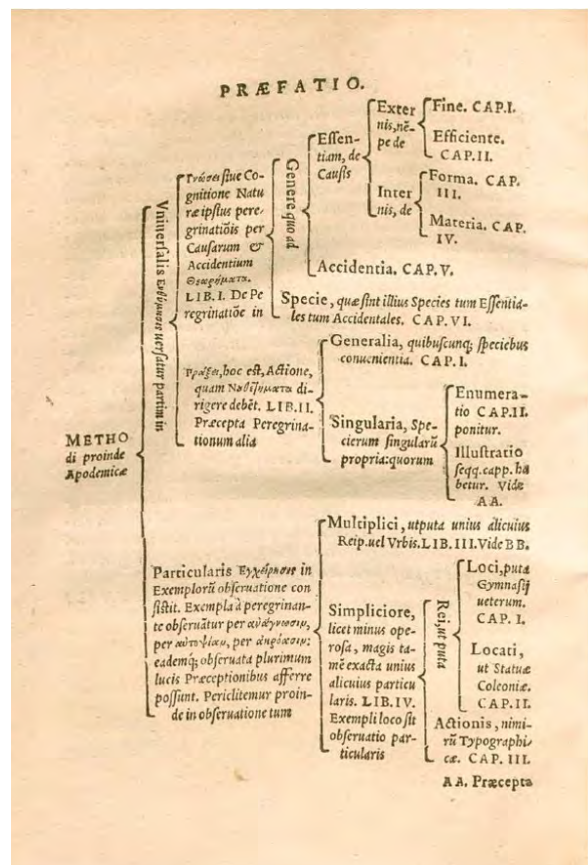 PRÆFATIO.
METHO
di proinde
Apodemicæ
Vniuersalis Ενθύμησις uersatur partim in
Γνώσει siue Co-
gnitione Natu
ræ ipsius pere-
grinatiõis per
Causarum &
Accidentium
Θεωρήματα.
LIB. I. De Pe
regrinatiõe in
Genere quo ad
Essen-
tiam, de
Causis
Exter
nis, nẽ-
pe de
Fine. CAP. I.
Efficiente.
CAP. II.
Inter
nis, de
Forma. CAP.
III.
Materia. CAP.
IV.
Accidentia. CAP. V.
Specie, quæ sint illius Species tum Essentia-
les tum Accidentales. CAP. VI.
Πράξει, hoc est, Actione,
quam di-
rigere debẽt. LIB. II.
Præcepta Peregrina-
tionum alia
Generalia, quibuscunq; speciebus
conuenientia. CAP. I.
Singularia, Spe-
cierum singularũ
propria: quorum
Enumera-
tio CAP. II.
ponitur.
Illustratio
seqq. capp. ha
betur. Vide
AA.
Particularis Ἐγχείρησις in
Exemplorũ obseruatione con
sistit. Exempla à peregrinan-
te obseruãtur per ἀνάγνωσιν,
per αὐτοψίαν, per ἀκρόασιν:
eademq; obseruata plurimum
lucis Præceptionibus afferre
possunt. Periclitemur proin-
de in obseruatione tum
Multiplici, utputa unius alicuius
Reip. uel Vrbis. LIB. III. Vide BB.
Simpliciore,
licet minus ope-
rosa, magis ta-
mẽ exacta unius
alicuius particu
laris. LIB. IV.
Exempli loco sit
obseruatio par-
ticularis
Rei, ut puta
Loci, puta
Gymnasij
ueterum.
CAP. I.
Locati,
ut Statuæ
Coleoniæ.
CAP. II.
Actionis, nimi-
rũ Typographi-
cæ. CAP. III.
AA. Præcepta